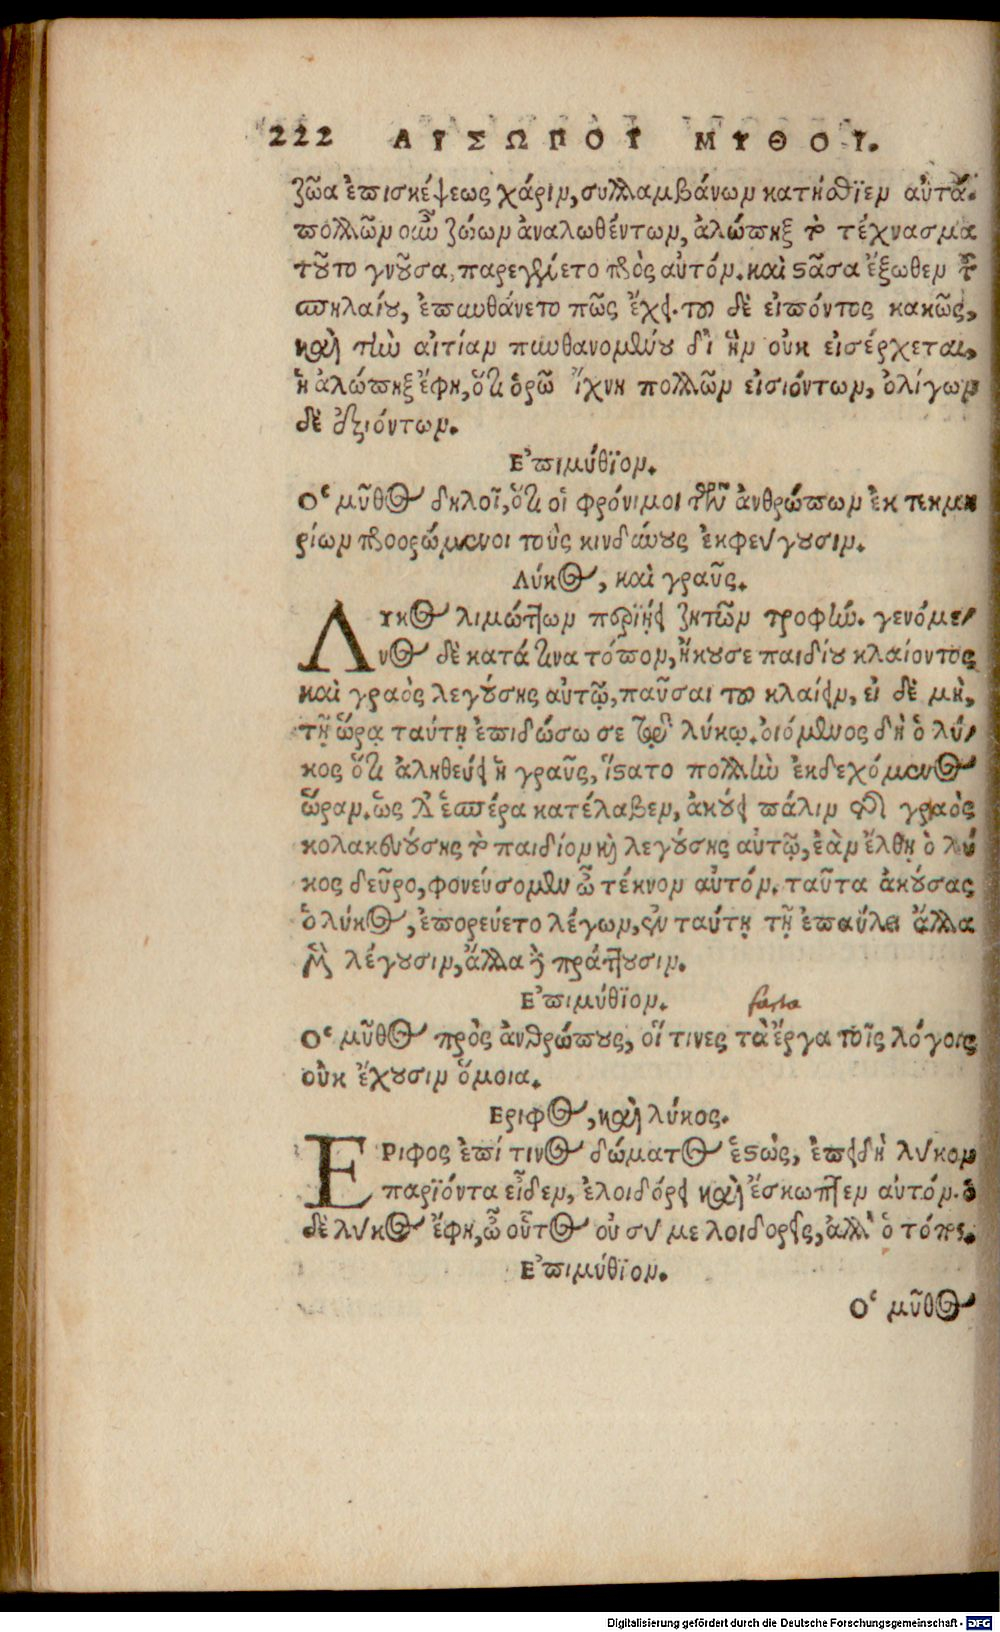 222 ΑΙΣΩΠΟΥ ΜΥΘΟΙ.
ζῶα ἐπισκέψεως χάριν, συλλαμβάνων κατήσθϊεν αὐτά.
πολλῶν οὖν ζώων ἀναλωθέντων, ἀλώπηξ τὸ τέχνασμα
τοῦτο γνοῦσα, παρεγένετο πρὸς αὐτόν. καὶ στᾶσα ἔξωθεν τοῦ
σπηλαίου, ἐπυνθάνετο πῶς ἔχει. τοῦ δὲ εἰπόντος κακῶς,
καὶ τὴν αἰτίαν πυνθανομένου δι' ἣν οὐκ εἰσέρχεται,
ἡ ἀλώπηξ ἔφη, ὅτι ὁρῶ ἴχνη πολλῶν εἰσιόντων, ὀλίγων
δὲ ἐξιόντων.
Ἐπιμύθϊον.
Ὁ μῦθος δηλοῖ, ὅτι οἱ φρόνιμοι τῶν ἀνθρώπων ἐκ τεκμη
ρίων προορώμενοι τοὺς κινδύνους ἐκφεύγουσιν.
Λύκος, καὶ γραῦς.
ΛΥκος λιμώττων περιῄει ζητῶν τροφήν. γενόμε-
νος δὲ κατά τινα τόπον, ἤκουσε παιδίου κλαίοντος
καὶ γραὸς λεγούσης αὐτῷ, παῦσαι τοῦ κλαίειν, εἰ δὲ μὴ,
τῇ ὥρᾳ ταύτῃ ἐπιδώσω σε τῷ λύκῳ. οἰόμενος δὴ ὁ λύ-
κος ὅτι ἀληθεύει ἡ γραῦς, ἵστατο πολλὴν ἐκδεχόμενος
ὥραν. ὡς δ' ἑσπέρα κατέλαβεν, ἀκούει πάλιν τῆς γραὸς
κολακευούσης τὸ παιδίον καὶ λεγούσης αὐτῷ, ἐὰν ἔλθῃ ὁ λύ
κος δεῦρο, φονεύσομεν ὦ τέκνον αὐτόν. ταῦτα ἀκούσας
ὁ λύκος, ἐπορεύετο λέγων, ἐν ταύτῃ τῇ ἐπαύλει ἄλλα
μὲν λέγουσιν, ἄλλα δὲ πράττουσιν.
Ἐπιμύθϊον. facta
Ὁ μῦθος πρὸς ἀνθρώπους, οἵ τινες τὰ ἔργα τοῖς λόγοις
οὐκ ἔχουσιν ὅμοια.
Εριφος, καὶ λύκος.
ΕΡιφος ἐπί τινος δώματος ἑστὼς, ἐπειδὴ λύκον
παρϊόντα εἶδεν, ἐλοιδόρει καὶ ἔσκωπτεν αὐτόν. ὁ
δὲ λύκος ἔφη, ὦ οὗτος οὐ σύ με λοιδορεῖς, ἀλλ' ὁ τόπος.
Ἐπιμύθϊον.
Ὁ μῦθος
Digitalisierung gefördert durch die Deutsche Forschungsgemeinschaft - DFG